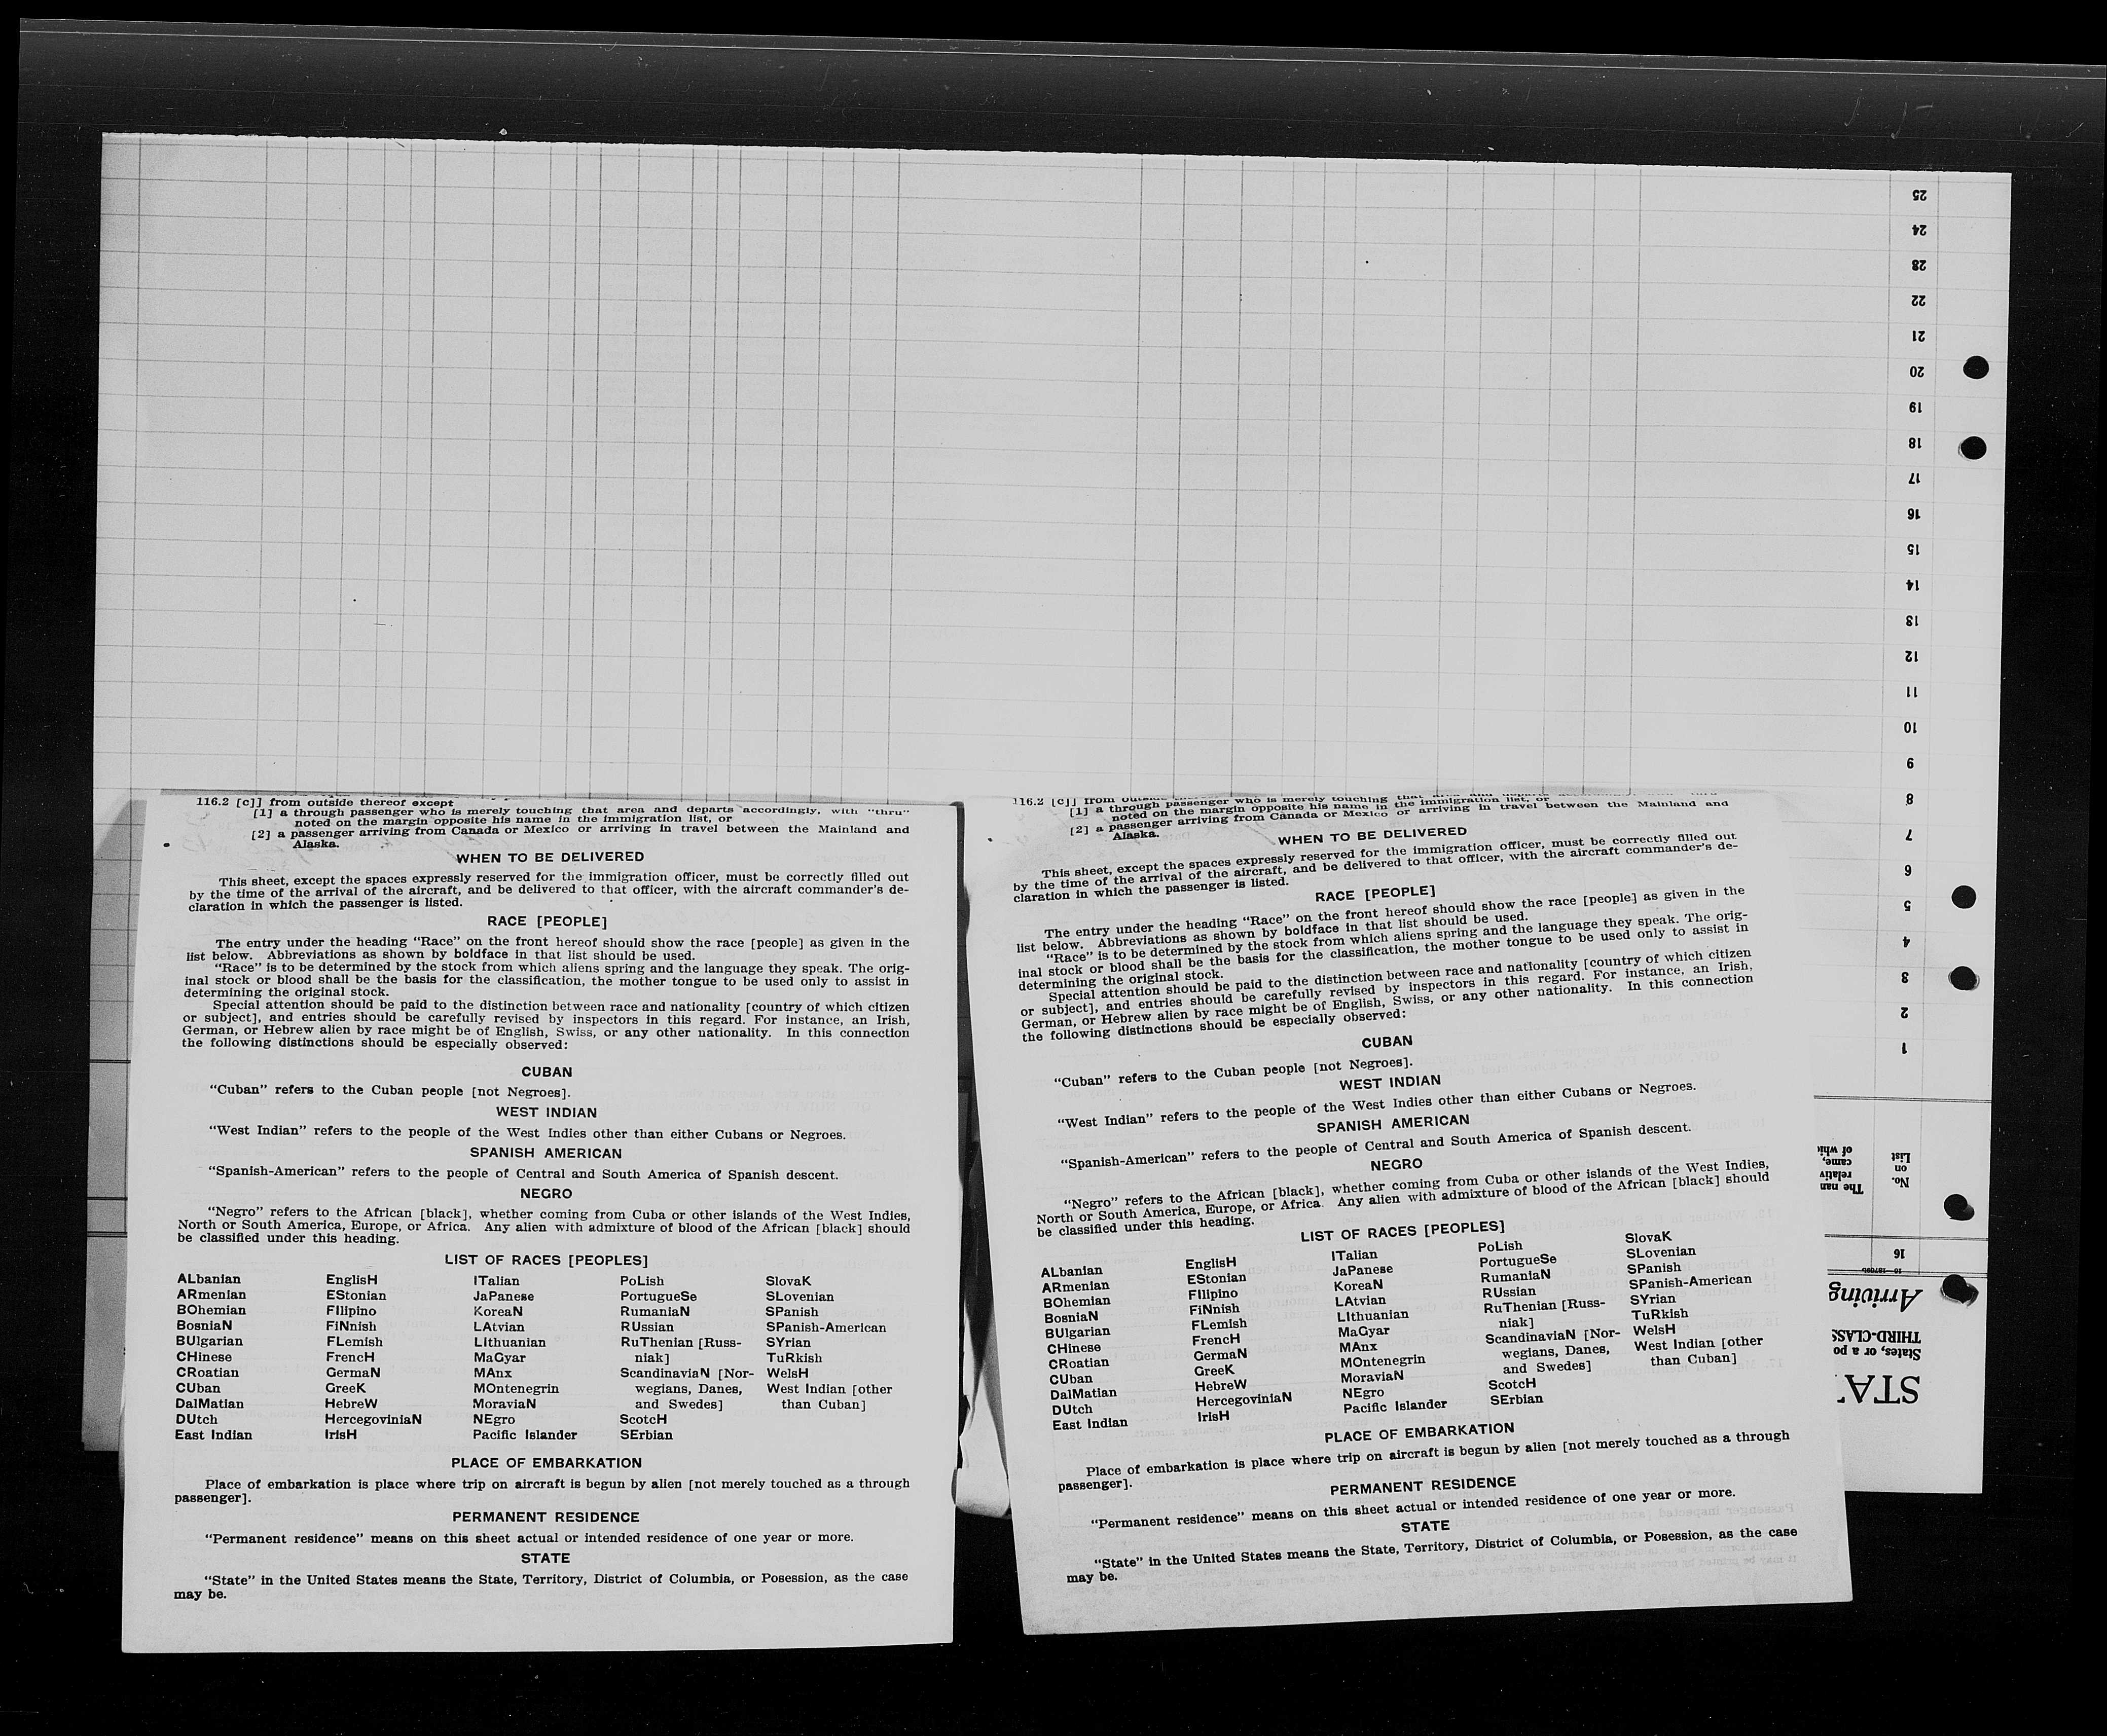 25
24
23
22
21
20
19
18
17
16
15
14
13
12
11
10
9
8
7
6
5
4
3
2
1
116.2 [c]] from outside thereof except
[1] a through passenger who is merely touching that area and departs accordingly, with “thru”
noted on the margin opposite his name in the immigration list, or
[2] a passenger arriving from Canada or Mexico or arriving in travel between the Mainland and
Alaska.
WHEN TO BE DELIVERED
This sheet, except the spaces expressly reserved for the immigration officer, must be correctly filled out
by the time of the arrival of the aircraft, and be delivered to that officer, with the aircraft commander's de-
claration in which the passenger is listed.
RACE [PEOPLE]
The entry under the heading “Race” on the front hereof should show the race [people] as given in the
list below. Abbreviations as shown by boldface in that list should be used.
“Race” is to be determined by the stock from which aliens spring and the language they speak. The orig-
inal stock or blood shall be the basis for the classification, the mother tongue to be used only to assist in
determining the original stock.
Special attention should be paid to the distinction between race and nationality [country of which citizen
or subject], and entries should be carefully revised by inspectors in this regard. For instance, an Irish,
German, or Hebrew alien by race might be of English, Swiss, or any other nationality. In this connection
the following distinctions should be especially observed:
CUBAN
“Cuban” refers to the Cuban people [not Negroes].
WEST INDIAN
“West Indian” refers to the people of the West Indies other than either Cubans or Negroes.
SPANISH AMERICAN
“Spanish-American” refers to the people of Central and South America of Spanish descent.
NEGRO
“Negro” refers to the African [black], whether coming from Cuba or other islands of the West Indies,
North or South America, Europe, or Africa. Any alien with admixture of blood of the African [black] should
be classified under this heading.
LIST OF RACES [PEOPLES]
ALbanian
ARmenian
BOhemian
BosniaN
BUlgarian
CHinese
CRoatian
CUban
DalMatian
DUtch
East Indian
EnglisH
EStonian
FIlipino
FiNnish
FLemish
FrencH
GermaN
GreeK
HebreW
HercegoviniaN
IrisH
ITalian
JaPanese
KoreaN
LAtvian
LIthuanian
MaGyar
MAnx
MOntenegrin
MoraviaN
NEgro
Pacific Islander
PoLish
PortugueSe
RumaniaN
RUssian
RuThenian [Russ-
niak]
ScandinaviaN [Nor-
wegians, Danes,
and Swedes]
ScotcH
SErbian
SlovaK
SLovenian
SPanish
SPanish-American
SYrian
TuRkish
WelsH
West Indian [other
than Cuban]
PLACE OF EMBARKATION
Place of embarkation is place where trip on aircraft is begun by alien [not merely touched as a through
passenger].
PERMANENT RESIDENCE
“Permanent residence” means on this sheet actual or intended residence of one year or more.
STATE
“State” in the United States means the State, Territory, District of Columbia, or Posession, as the case
may be.
116.2 [c]] from
[1] a through passenger who is merely touching that area and departs
noted on the margin opposite his name in the immigration list, or
[2] a passenger arriving from Canada or Mexico or arriving in travel between the Mainland and
Alaska.
WHEN TO BE DELIVERED
This sheet, except the spaces expressly reserved for the immigration officer, must be correctly filled out
by the time of the arrival of the aircraft, and be delivered to that officer, with the aircraft commander's de-
claration in which the passenger is listed.
RACE [PEOPLE]
The entry under the heading “Race” on the front hereof should show the race [people] as given in the
list below. Abbreviations as shown by boldface in that list should be used.
“Race” is to be determined by the stock from which aliens spring and the language they speak. The orig-
inal stock or blood shall be the basis for the classification, the mother tongue to be used only to assist in
determining the original stock.
Special attention should be paid to the distinction between race and nationality [country of which citizen
or subject], and entries should be carefully revised by inspectors in this regard. For instance, an Irish,
German, or Hebrew alien by race might be of English, Swiss, or any other nationality. In this connection
the following distinctions should be especially observed:
CUBAN
“Cuban” refers to the Cuban people [not Negroes].
WEST INDIAN
“West Indian” refers to the people of the West Indies other than either Cubans or Negroes.
SPANISH AMERICAN
“Spanish-American” refers to the people of Central and South America of Spanish descent.
NEGRO
“Negro” refers to the African [black], whether coming from Cuba or other islands of the West Indies,
North or South America, Europe, or Africa. Any alien with admixture of blood of the African [black] should
be classified under this heading.
LIST OF RACES [PEOPLES]
ALbanian
ARmenian
BOhemian
BosniaN
BUlgarian
CHinese
CRoatian
CUban
DalMatian
DUtch
East Indian
EnglisH
EStonian
FIlipino
FiNnish
FLemish
FrencH
GermaN
GreeK
HebreW
HercegoviniaN
IrisH
ITalian
JaPanese
KoreaN
LAtvian
LIthuanian
MaGyar
MAnx
MOntenegrin
MoraviaN
NEgro
Pacific Islander
PoLish
PortugueSe
RumaniaN
RUssian
RuThenian [Russ-
niak]
ScandinaviaN [Nor-
wegians, Danes,
and Swedes]
ScotcH
SErbian
SlovaK
SLovenian
SPanish
SPanish-American
SYrian
TuRkish
WelsH
West Indian [other
than Cuban]
PLACE OF EMBARKATION
Place of embarkation is place where trip on aircraft is begun by alien [not merely touched as a through
passenger].
PERMANENT RESIDENCE
“Permanent residence” means on this sheet actual or intended residence of one year or more.
STATE
“State” in the United States means the State, Territory, District of Columbia, or Posession, as the case
may be.
STA
States, or a po
THIRD-CLASS
Arriving
16
No.
on
List
The nam
relativ
came,
of whi